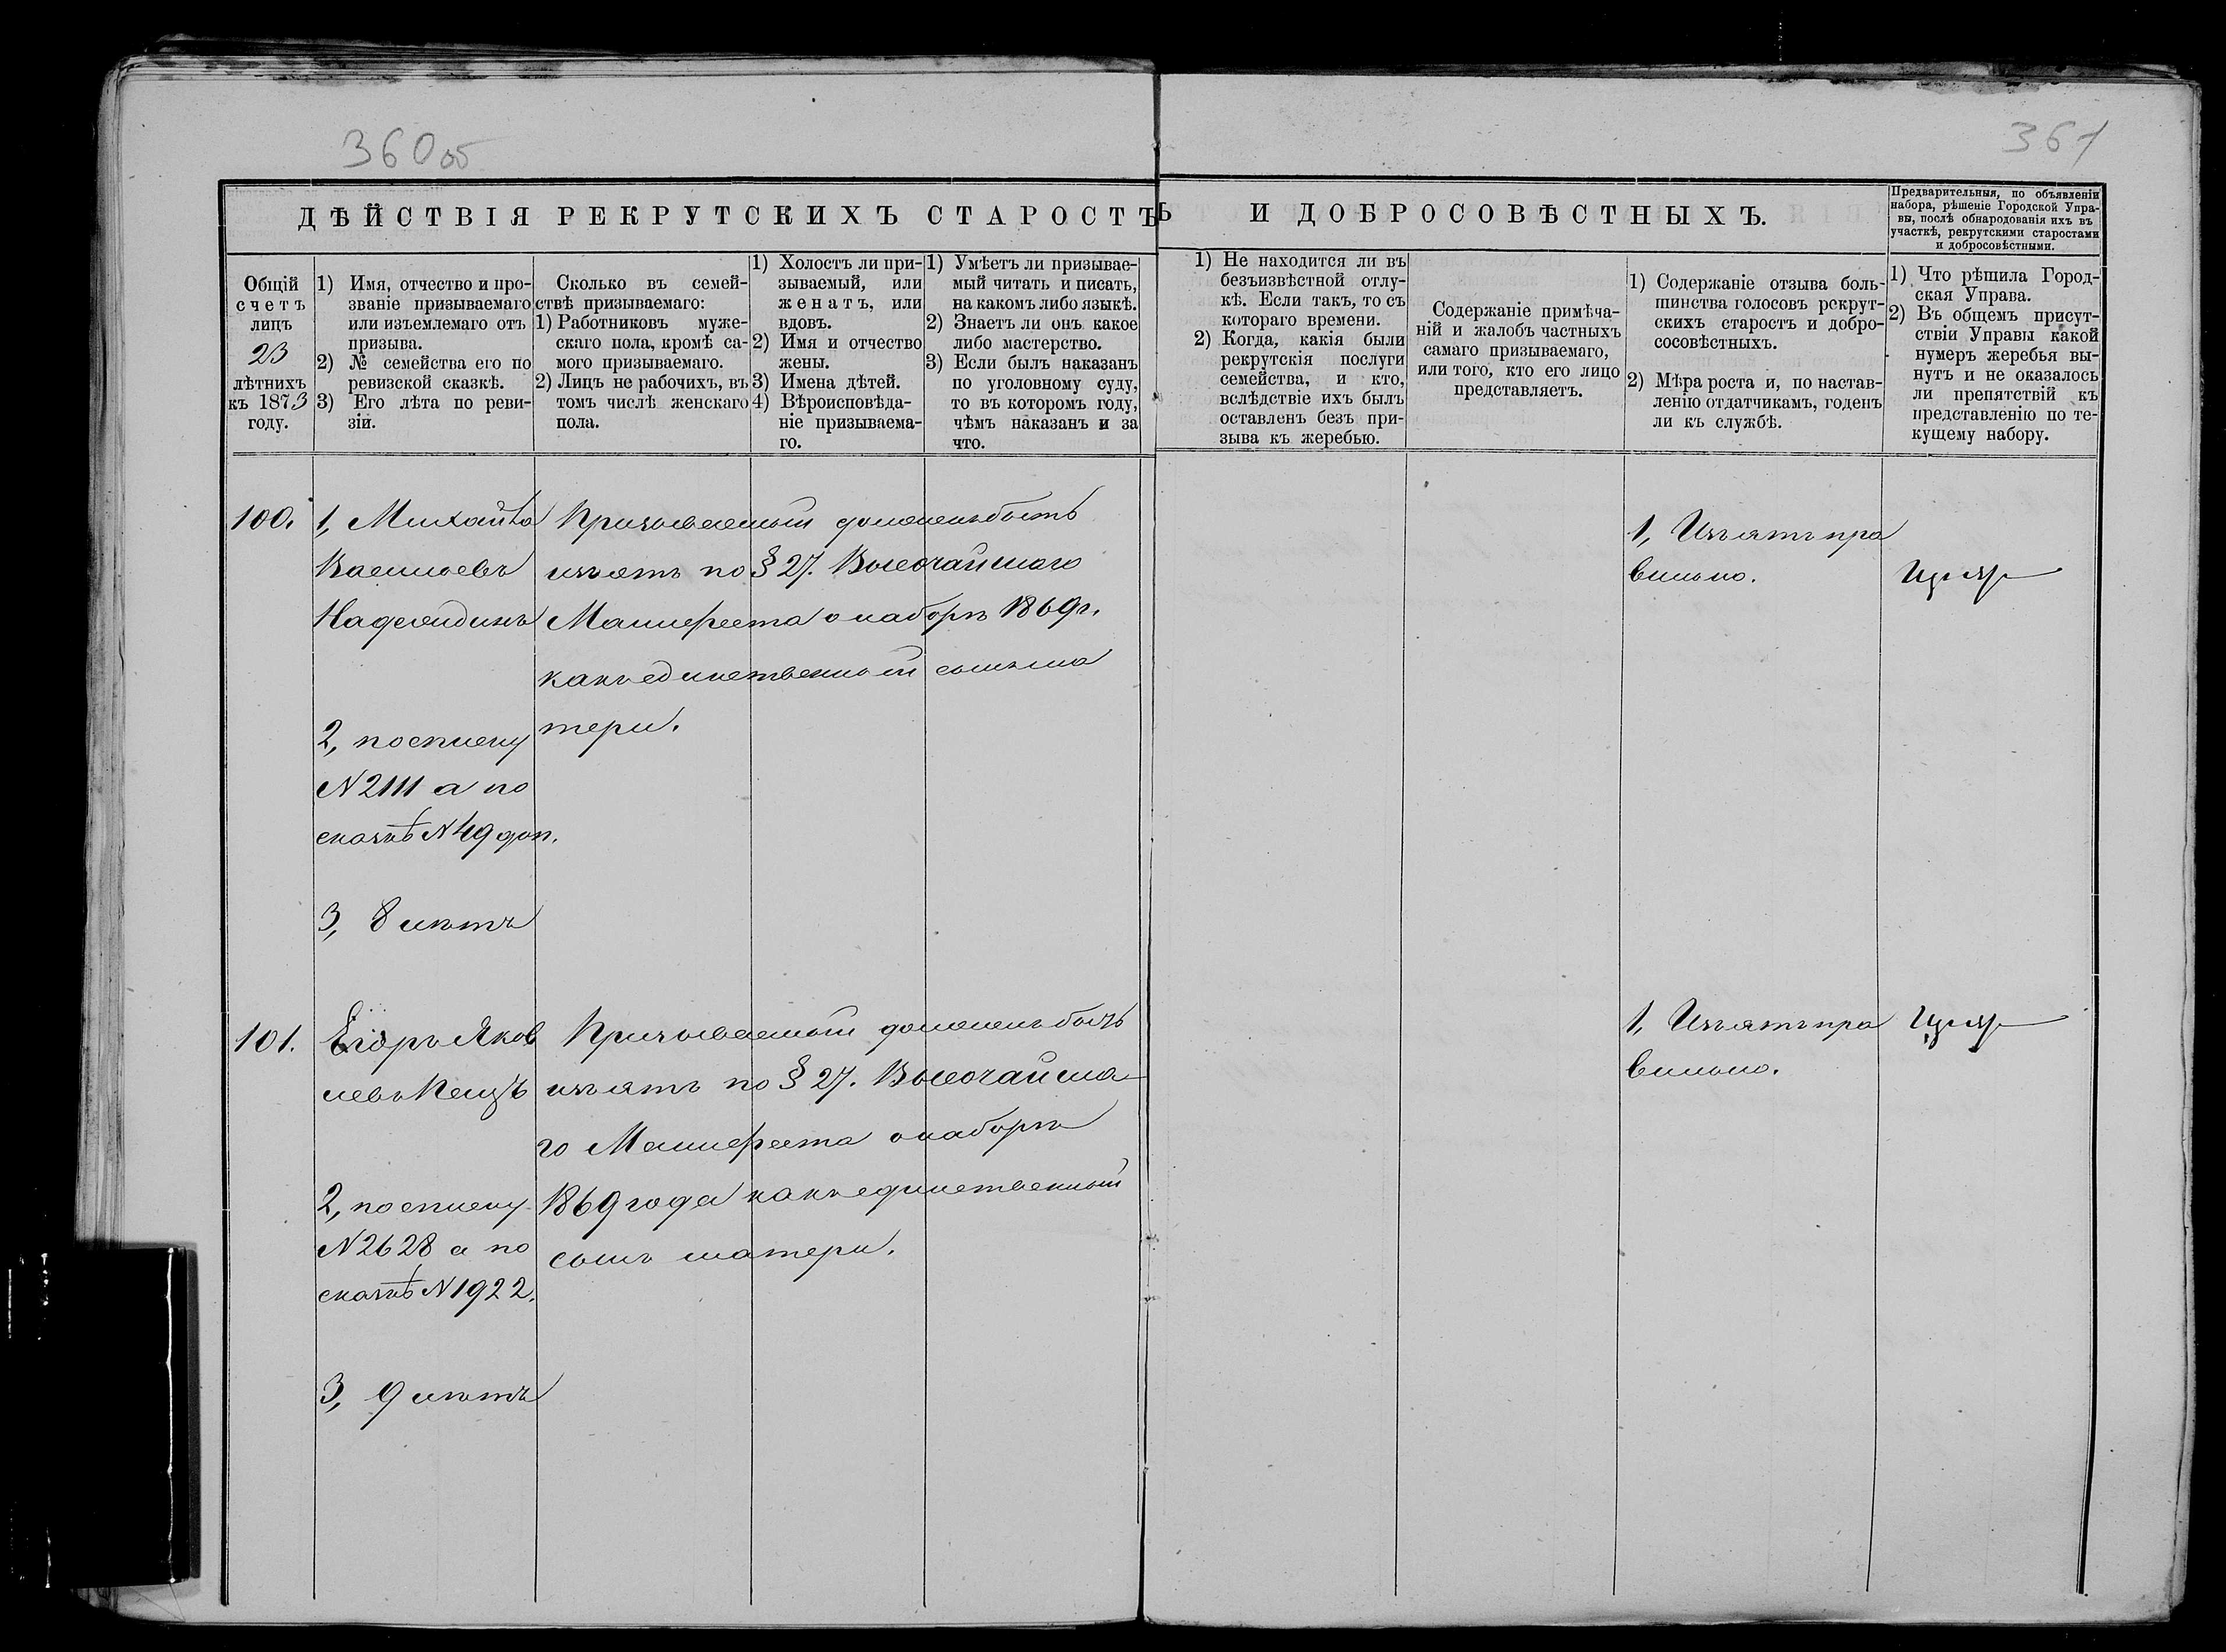 360 об
361
ДѢЙСТВІЯ РЕКРУТСКИХЪ СТАРОСТЪ И ДОБРОСОВѢСТНЫХЪ.
Предварительныя, по объявленіи
набора, рѣшеніе Городской Упра-
вы, послѣ обнародованія ихъ въ
участкѣ, рекрутскими старостами
и добросовѣстными.
Общій
счетъ
лицъ
23
лѣтнихъ
къ 1873
году.
1) Имя, отчество и про-
званіе призываемаго
или изъемлемаго отъ
призыва.
2) № семейства его по
ревизской сказкѣ.
3) Его лѣта по реви-
зіи.
Сколько въ семей-
ствѣ призываемаго:
1) Работниковъ муже-
скаго пола, кромѣ са-
мого призываемаго.
2) Лицъ не рабочихъ, въ
томъ числѣ женскаго
пола.
1) Холостъ ли при-
зываемый, или
женатъ, или
вдовъ.
2) Имя и отчество
жены.
3) Имена дѣтей.
4) Вѣроисповѣда-
ніе призываема-
го.
1) Умѣетъ ли призывае-
мый читать и писать,
на какомъ либо языкѣ.
2) Знаетъ ли онъ какое
либо мастерство.
3) Если былъ наказанъ
по уголовному суду,
то въ которомъ году,
чѣмъ наказанъ и за
что.
1) Не находится ли въ
безъизвѣстной отлу-
кѣ. Если такъ, то съ
котораго времени.
2) Когда, какія были
рекрутскія послуги
семейства, и кто,
вслѣдствіе ихъ былъ
оставленъ безъ при-
зыва къ жеребью.
Содержаніе примѣча-
ній и жалобъ частныхъ
самаго призываемаго,
или того, кто его лицо
представляетъ.
1) Содержаніе отзыва боль-
шинства голосовъ рекрут-
скихъ старостъ и добро-
сосовѣстныхъ.
2) Мѣра роста и, по настав-
ленію отдатчикамъ, годенъ
ли къ службѣ.
1) Что рѣшила Город-
ская Управа.
2) Въ общемъ присут-
ствіи Управы какой
нумеръ жеребья вы-
нутъ и не оказалось
ли препятствій къ
представленію по те-
кущему набору.
100.
1, Михайла
Васильевъ
2, по списку
N 2111 а по
сказкѣ N 49 доп.
3, 8 лѣтъ
Призываемый долженъ быть
изъятъ по § 27. Высочайшаго
Манифеста о наборѣ 1869 г.
какъ единственный сынъ ма
тери.
1, Изъятъ пра
вильно.
101.
Егоръ Яков
левъ
2, по списку
N 2628 а по
сказкѣ N 1922.
3, 9 лѣтъ
Призываемый долженъ быть
изъятъ по § 27. Высочайша-
го Манифеста о наборѣ
1869 года какъ единственный
сынъ матери.
1, Изъятъ пра
вильно.